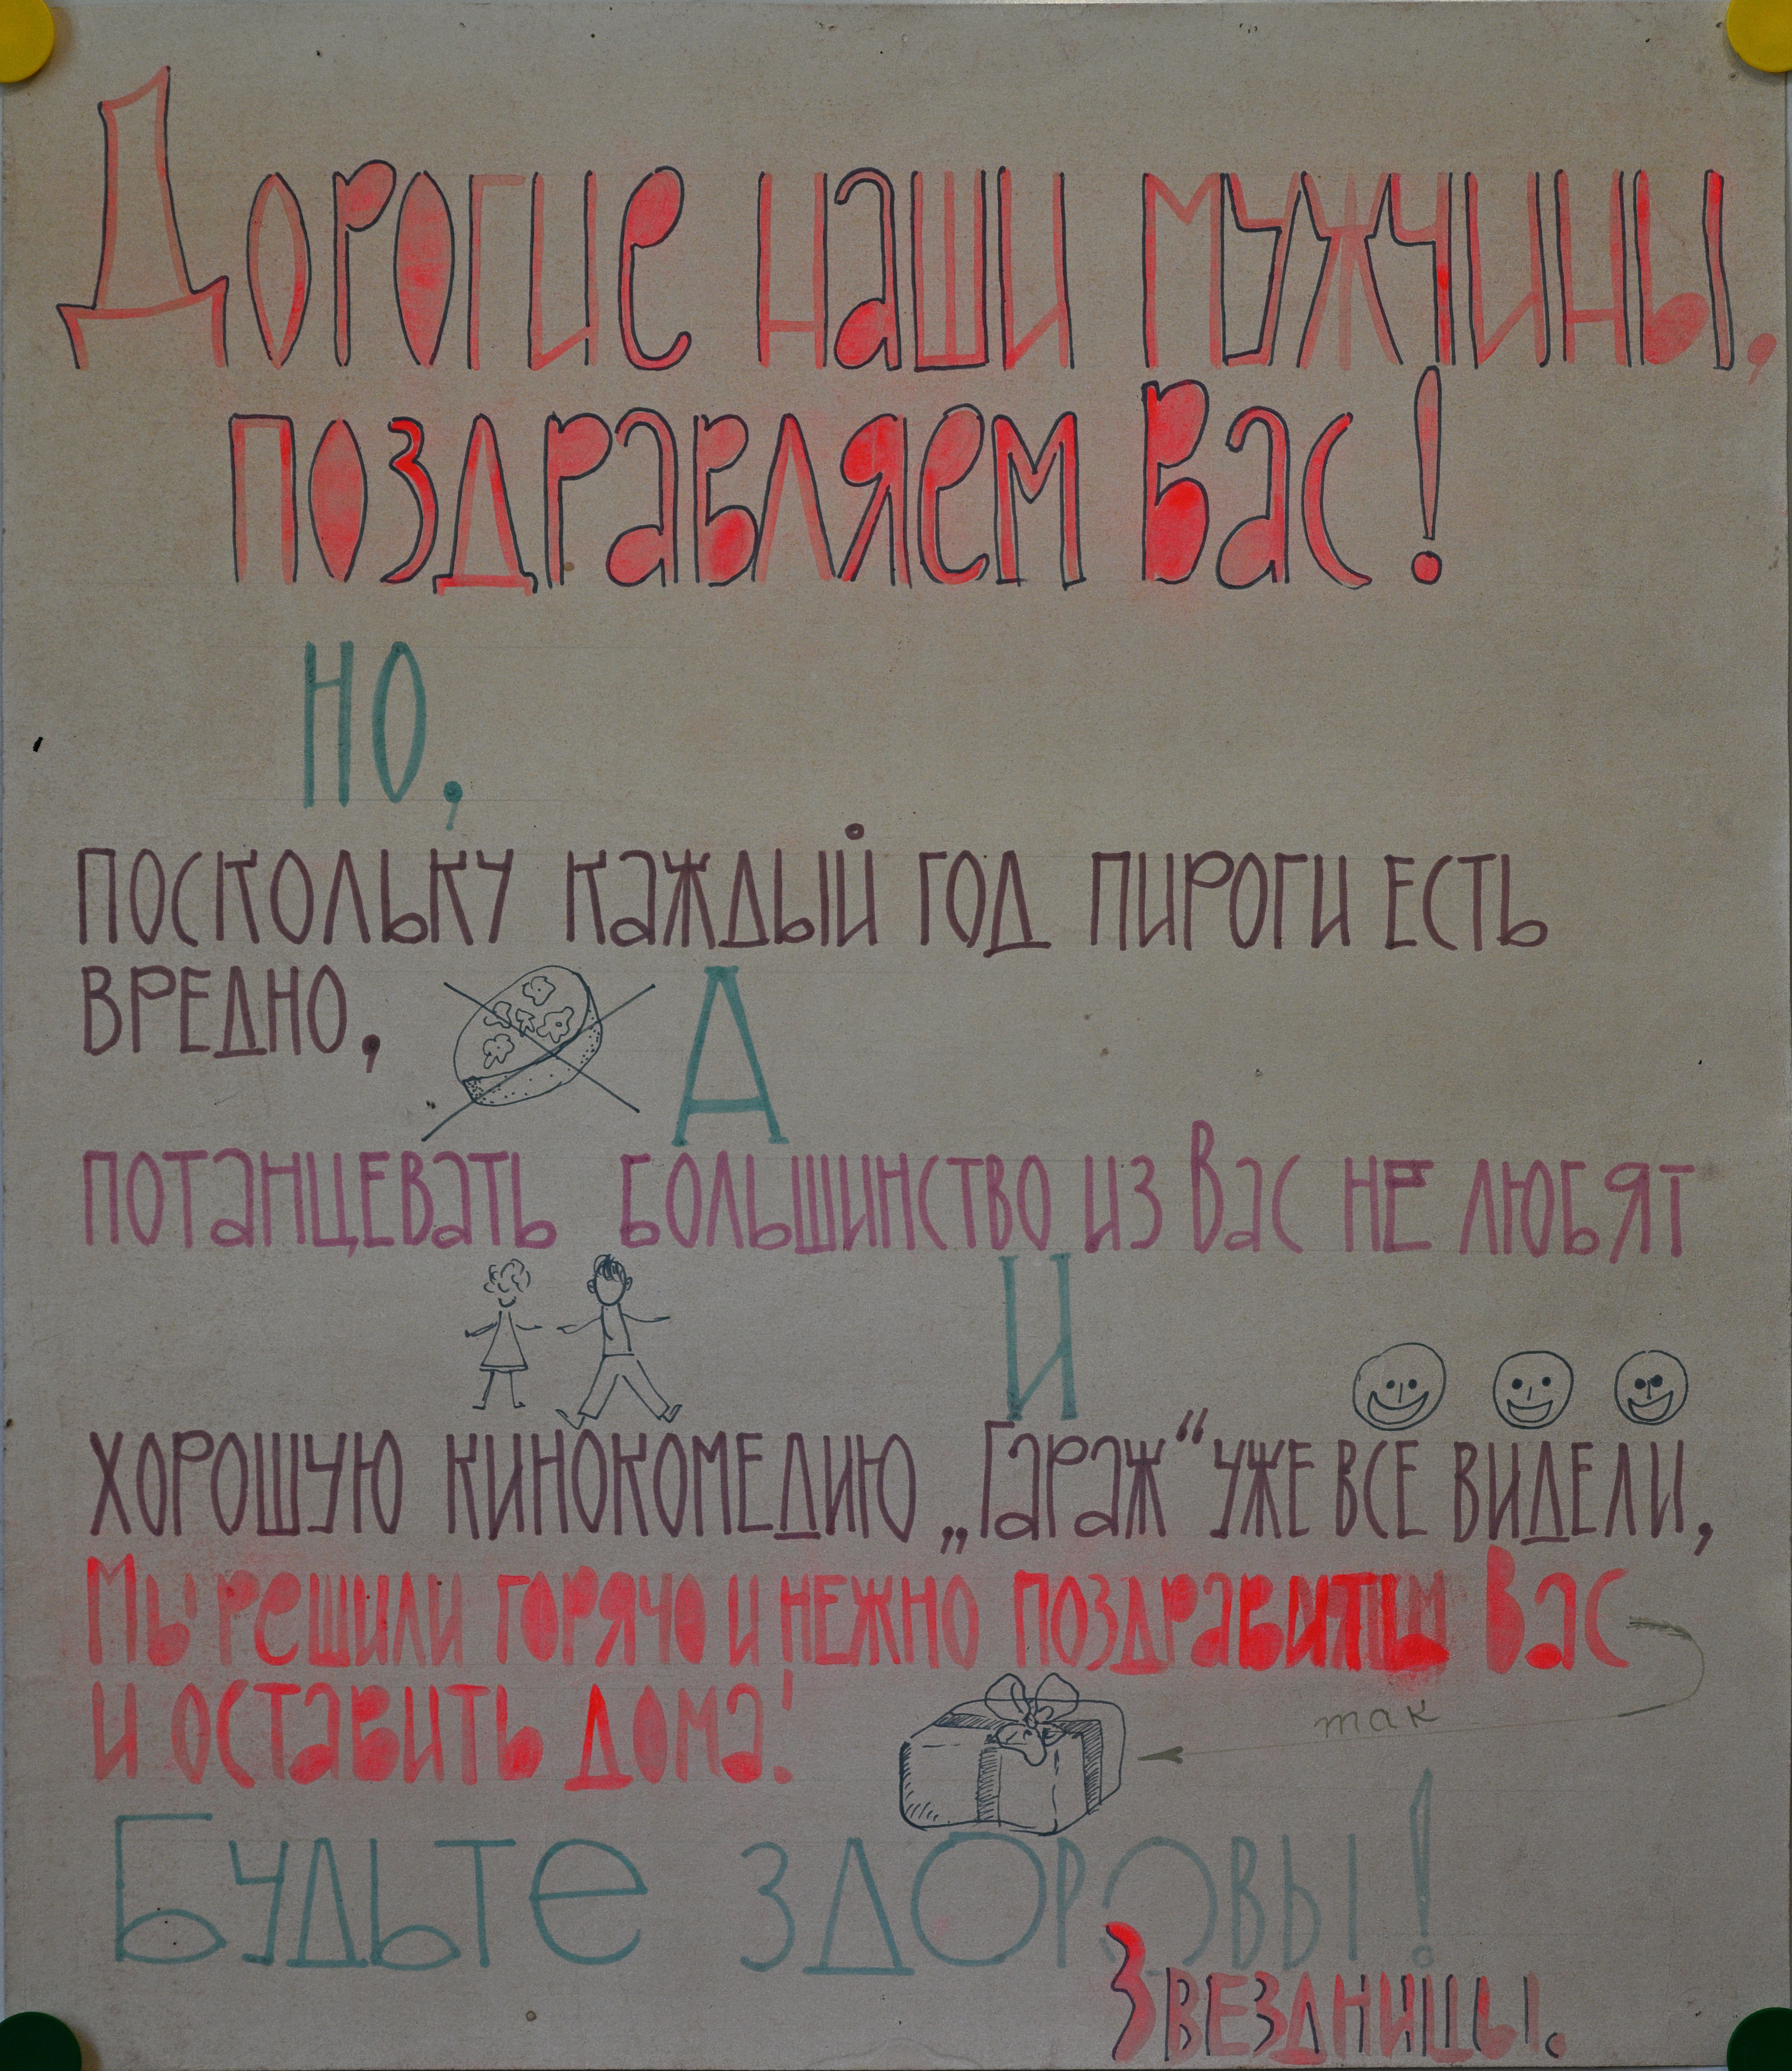 Дорогие наши мужчины,
поздравляем Вас!
НО,
ПОСКОЛЬКУ КАЖДЫЙ ГОД ПИРОГИ ЕСТЬ
ВРЕДНО,
А
ПОТАНЦЕВАТЬ БОЛЬШИНСТВО ИЗ ВАС НЕ ЛЮБЯТ
И
ХОРОШУЮ КИНОКОМЕДИЮ „Гараж“ УЖЕ ВСЕ ВИДЕЛИ,
Мы решили горячо и нежно поздравить Вас
и оставить дома!
так
Будьте здоровы!
Звездницы.